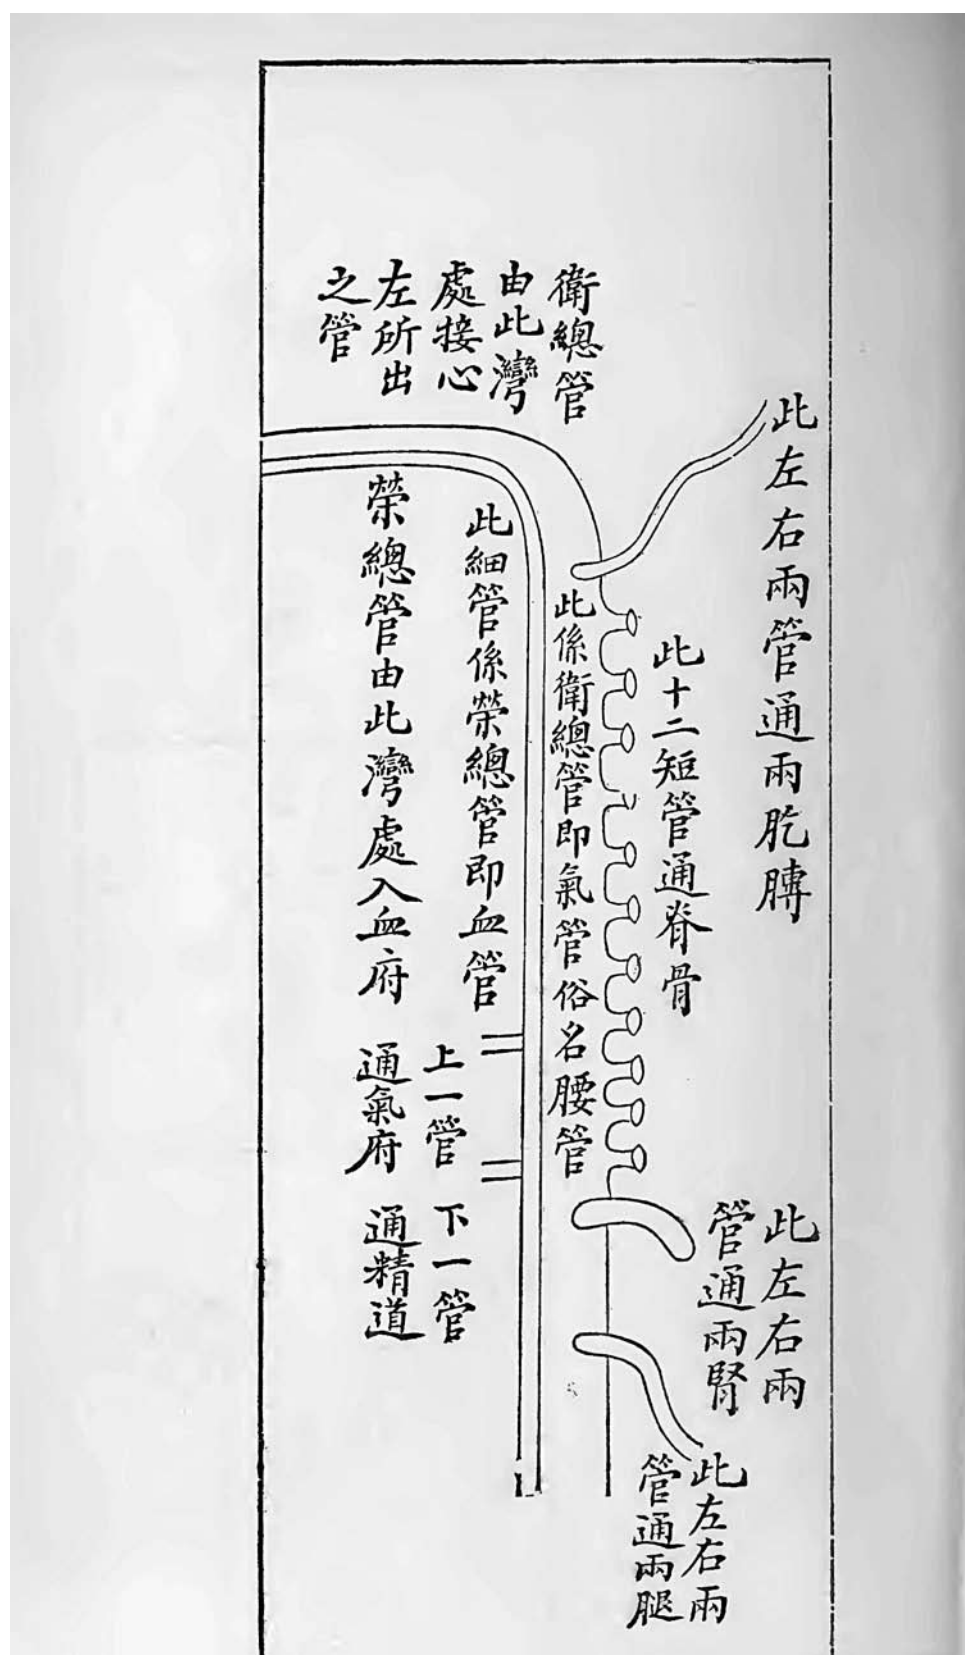 衛總管
由此灣
處接心
左所出
之管
此左右兩管通兩肐膊
此十二短管通脊骨
此係衛總管即氣管俗名腰管
此細管係榮總管即血管
榮總管由此灣處入血府
上一管
通氣府
下一管
通精道
此左右兩
管通兩腎
此左右兩
管通兩腿